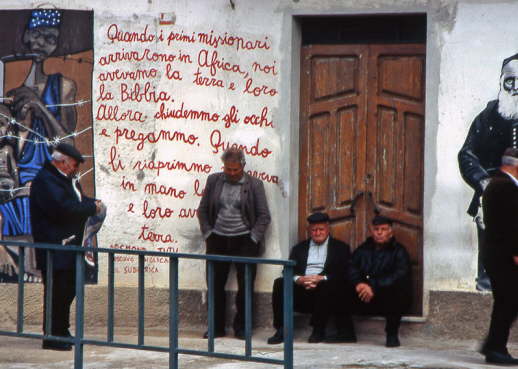 Quando i primi missionari
arrivarono in Africa, noi
avevamo la terra e loro
la Bibbia.
Allora chiudemmo gli occhi
e pregammo. Quando
li riaprimmo
in mano la
e loro
terra.
DESMOND TUTU
SUDAFRICA